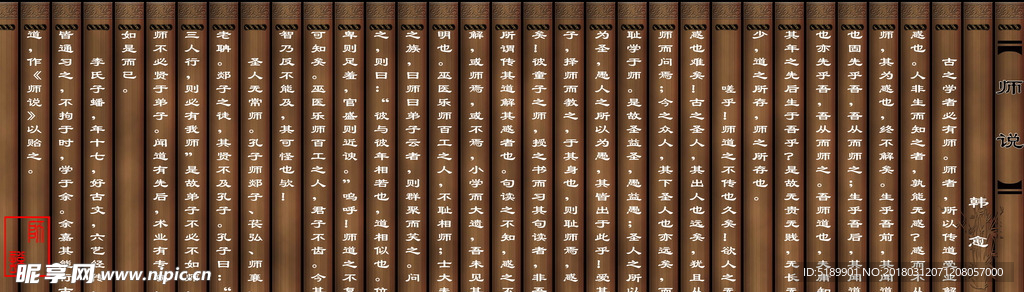 师说
韩愈
古之学者必有师。师者，所以传道受业
惑也。人非生而知之者，孰能无惑？惑而不从
师，其为惑也，终不解矣。生乎吾前，其闻道
也固先乎吾，吾从而师之；生乎吾后，其闻道
也亦先乎吾，吾从而师之。吾师道也，夫庸
其年之先后生于吾乎？是故无贵无贱，无长无
少，道之所存，师之所存也。
嗟乎！师道之不传也久矣！欲人之无
惑也难矣！古之圣人，其出人也远矣，犹且从
师而问焉；今之众人，其下圣人也亦远矣，而
耻学于师。是故圣益圣，愚益愚；圣人之所以
为圣，愚人之所以为愚，其皆出于此乎！爱其
子，择师而教之；于其身也，则耻师焉，惑
矣！彼童子之师，授之书而习其句读者，非吾
所谓传其道解其惑者也。句读之不知，惑之不
解，或师焉，或不焉，小学而大遗，吾未见其
明也。巫医乐师百工之人，不耻相师；士大夫
之族，曰师曰弟子云者，则群聚而笑之。问
之，则曰：“彼与彼年相若也，道相似也。位
卑则足羞，官盛则近谀。”呜呼！师道之不复
可知矣。巫医乐师百工之人，君子不齿。今其
智乃反不能及，其可怪也欤！
圣人无常师。孔子师郯子、苌弘、师襄
老聃。郯子之徒，其贤不及孔子。孔子曰：“
三人行，则必有我师”是故弟子不必不如师
师不必贤于弟子。闻道有先后，术业有专
如是而已。
李氏子蟠，年十七，好古文，六艺经传
皆通习之，不拘于时，学于余。余嘉其能行古
道，作《师说》以贻之。
昵享网 www.nipic.cn
ID:5189901 NO:20180312071208057000